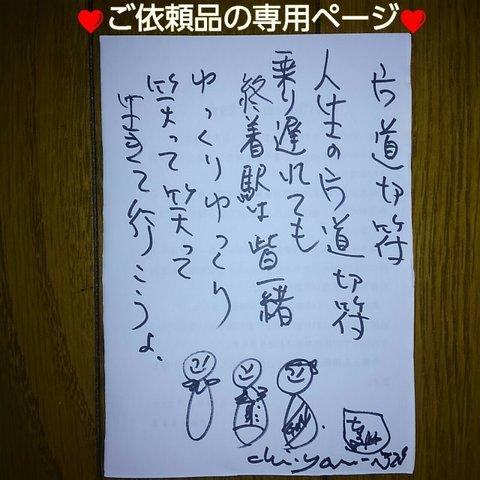 ❤ご依頼品の専用ページ❤
片道切符
人生の片道切符
乗り遅れても
終着駅は皆一緒
ゆっくりゆっくり
笑って笑って
生きて行こうよ、